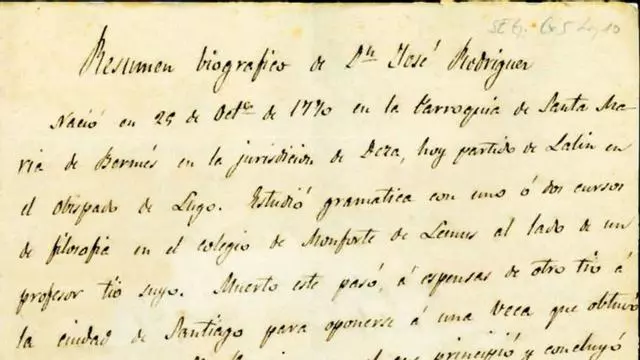 Resumen biografico de Dn José Rodriguez
Nació en 25 de Octe de 1770 en la Parroquia de Santa Ma-
ria de Bermés en la jurisdicion de Deza, hoy partido de Lalin en
el obispado de Lugo. Estudió gramatica con uno ó dos cursos
de filosofia en el colegio de Monforte de Lemus al lado de un
profesor tio suyo. Muerto este pasó, á espensas de otro tio á
la ciudad de Santiago para oponerse á una veca que obtuvo
principió y concluyó